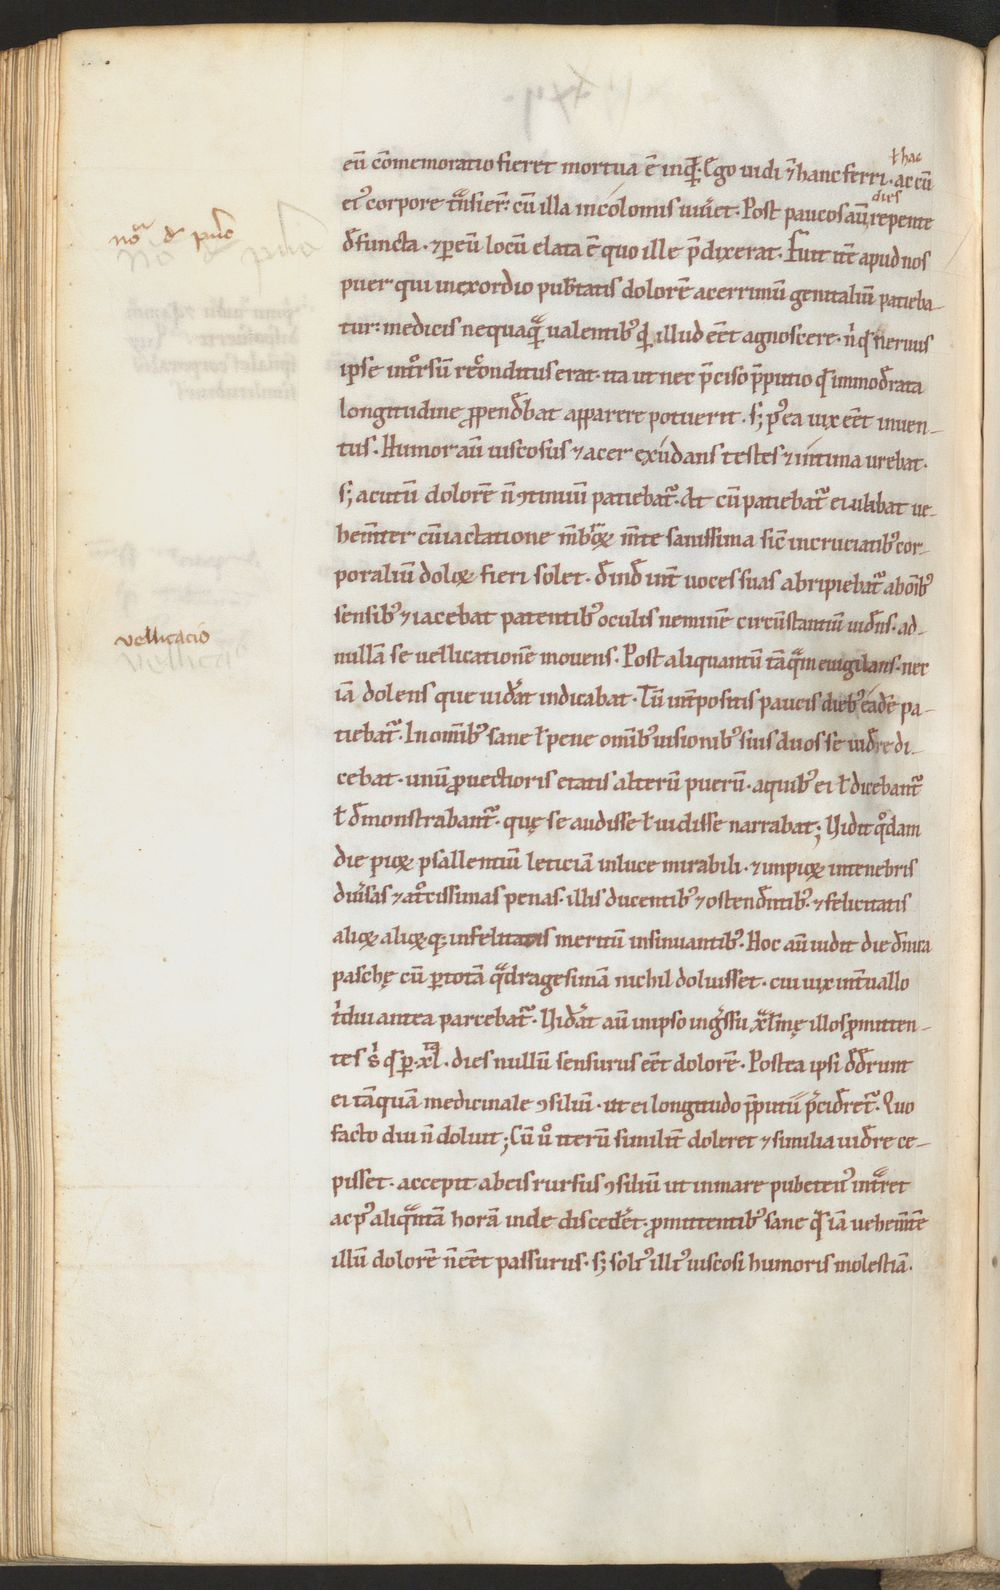 ł hac
eū c̄memoratio fieret mortua ē inq̄t. Ego uidi ⁊ hanc ferri. ac cū
ei᷒ corpore t̄nsierī. cū illa incolomis uiu̅et. Post paucos au̅ dies repente
nōa de pu̅o
đfuncta. ⁊ p eu̅ locū elata ē quo ille p̄dixerat. Fuit itē apud nos
puer qui in exordio pub̄tatis dolorē acerrimū genitaliū patieba-
tur. medicis nequaqͣ̄ ualentib᷒ qͥd illud eēt agnoscere. nͥ qđ neruus
ipse int᷑rsū reͨonditus erat. ita ut nec p̄ciso p̄putio qđ immođrata
longitudine ꝓpenđbat apparere potuerit. sꝫ p᷒ea uix eēt inuen-
tus. Humor au̅ uiscosus ⁊ acer exúdans testes ⁊ íntima urebat.
sꝫ acutū dolorē n̄ ꝯtinuū patiebat᷑. At cū patiebat᷑ eiulabat ue-
hem̄ter cū iactatione m̄broꝝ m̄te sanissima sic̄ in cruciatib᷒ cor-
poraliū doloꝝ fieri solet. đinđ int̄ uoces suas abripiebat᷑ ab om̄ib᷒
sensib᷒ ⁊ iacebat patentib᷒ oculis neminē circūstantiū uiđns. ad
vellicacio
nullā se uellicationē mouens. Post aliquantū tāqͣm euigilans. nec
iā dolens que uiđat indicabat. Tū int̄positis paucis dieb᷒ eadē pa-
tiebat᷑. In om̄ib᷒ sane ł pene om̄ib᷒ uisionib᷒ suis duos se uiđre di-
cebat. unū ꝓuectioris etatis alterū puerū. a quib᷒ ei ł dicebant᷑
ł đmonstrabant᷑. quę se audisse ł uidisse narrabat; Uidit qͦdam
die pioꝝ psallentiū leticiā in luce mirabili. ⁊ impioꝝ in tenebris
diu̅sas ⁊ atͦcissimas penas. illis ducentib᷒ ⁊ ostenđntib᷒. ⁊ felicitatis
alioꝝ alioꝝqꝫ infelicitatis meritū insinuantib᷒. Hoc au̅ uidit die đnica
paschę cū ꝑ totā qͣdragesimā nichil doluisset. cui uix int̄uallo
tͥdui antea parcebat᷑. Uiđat au̅ in ipso ing̅ssu xͣl̄mę illos ꝓmitten-
tes sͥ qđ ꝑ .xlͭᵃ. dies nullū sensurus eēt dolorē. Postea ipsi đđrunt
ei tāquā medicinale ꝯsiliū. ut ei longitudo p̄putíí p̄ciđret᷑. Quo
facto diu n̄ doluit; Cū uͦ iterū similit̄ doleret ⁊ similia uiđre ce-
pisset. accepit ab eis rursus ꝯsiliū ut in mare pubeten᷒ intͣret
ac p᷒ aliqͣntā horā inde disceđet. ꝓmittentib᷒ sane qđ iā uehem̄tē
illū dolorē n̄ eēt passurus. sꝫ soli᷒ illi᷒ uiscosi humoris molestiā.